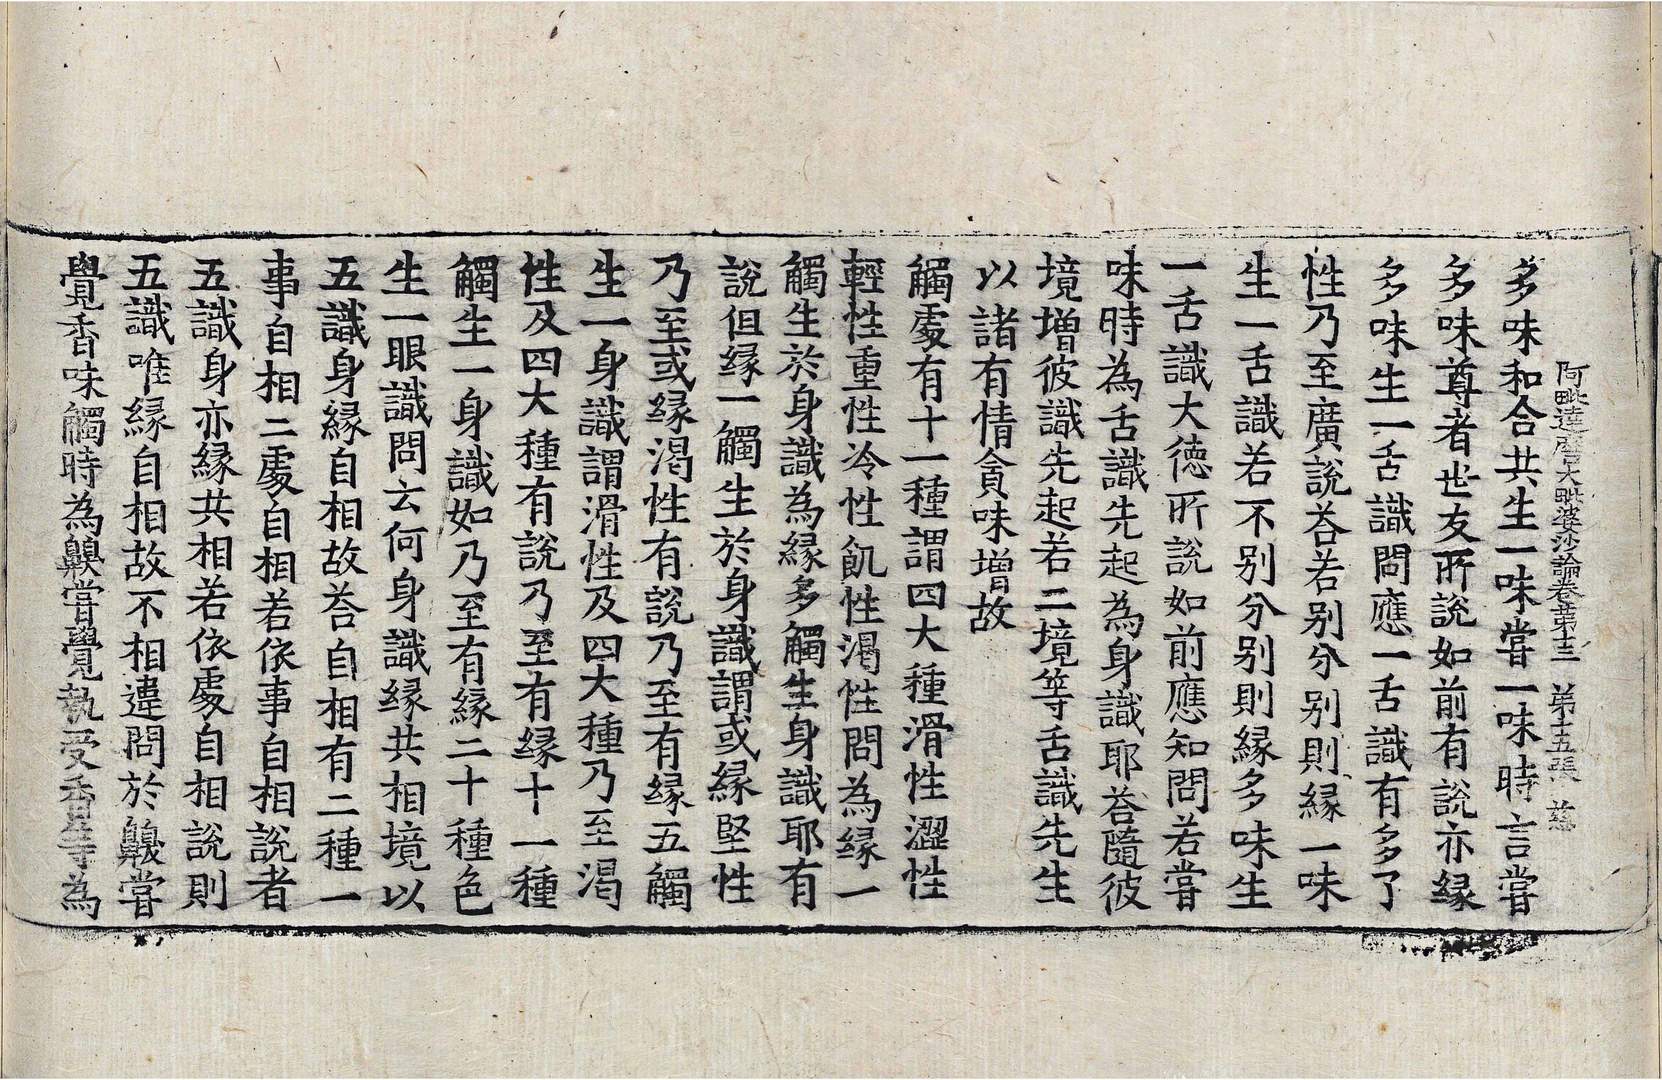 阿毗達磨大毗婆沙論卷苐十三　苐十五張　慈
多味和合共生一味嘗一味時言嘗
多味尊者世友所說如前有說亦縁
多味生一舌識問應一舌識有多了
性乃至廣說荅若别分别則縁一味
生一舌識若不别分别則縁多味生
一舌識大德所說如前應知問若嘗
味時為舌識先起為身識耶荅隨彼
境增彼識先起若二境等舌識先生
以諸有情貪味增故
觸處有十一種謂四大種滑性澀性
輕性重性冷性飢性渴性問為縁一
觸生於身識為縁多觸生身識耶有
說但縁一觸生於身識謂或縁堅性
乃至或縁渴性有說乃至有縁五觸
生一身識謂滑性及四大種乃至渴
性及四大種有說乃至有縁十一種
觸生一身識如乃至有縁二十種色
生一眼識問云何身識縁共相境以
五識身縁自相故荅自相有二種一
事自相二處自相若依事自相說者
五識身亦縁共相若依處自相說則
五識唯縁自相故不相違問於齅嘗
覺香味觸時為齅嘗覺執受香等為